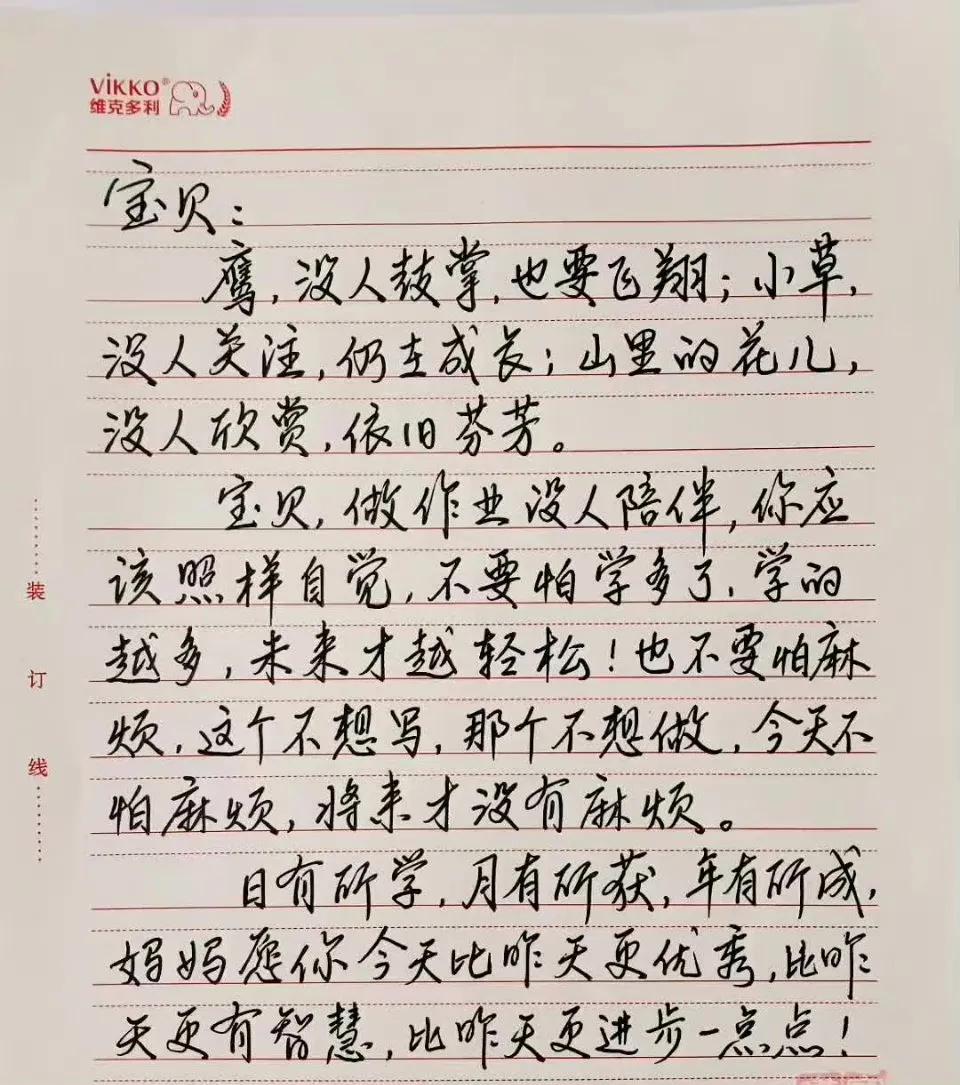 ViKKO®
维克多利
宝贝：
鹰，没人鼓掌，也要飞翔；小草，
没人关注，仍在成长；山里的花儿，
没人欣赏，依旧芬芳。
宝贝，做作业没人陪伴，你应
该照样自觉，不要怕学多了，学的
越多，未来才越轻松！也不要怕麻
烦，这个不想写，那个不想做，今天不
怕麻烦，将来才没有麻烦。
日有所学，月有所获，年有所成，
妈妈愿你今天比昨天更优秀，比昨
天更有智慧，比昨天更进步一点点！
装
订
线